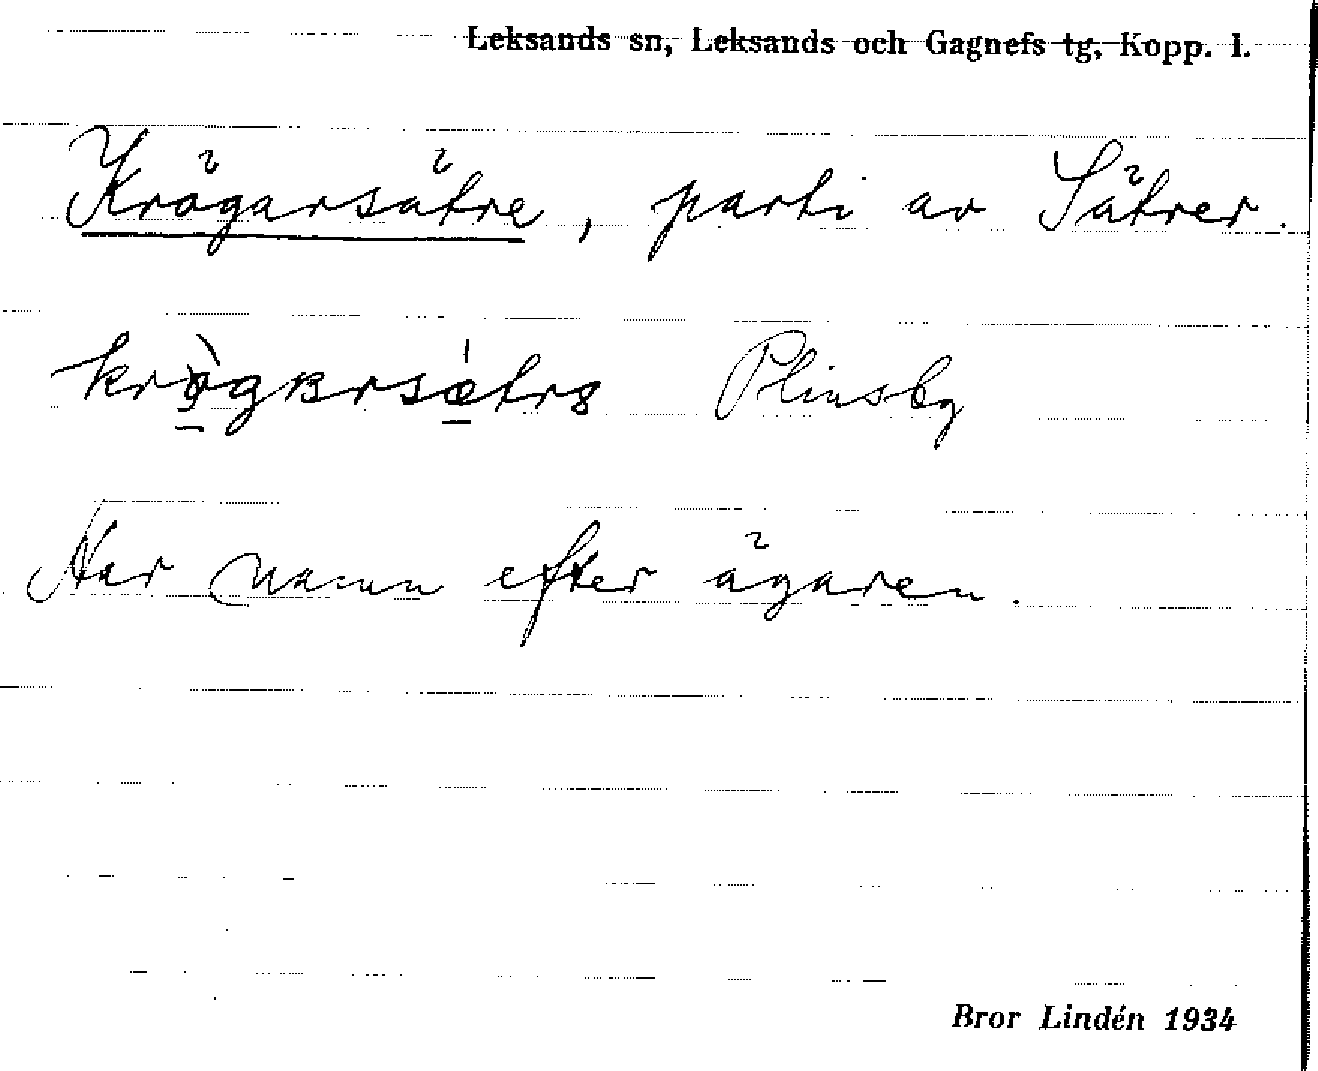 Leksands sn, Leksands och Gagnefs tg, Kopp. l.
Krägarsätre, parti av Sätrer.
Plinsby
Har namn efter ägaren.
Bror Lindén 1934